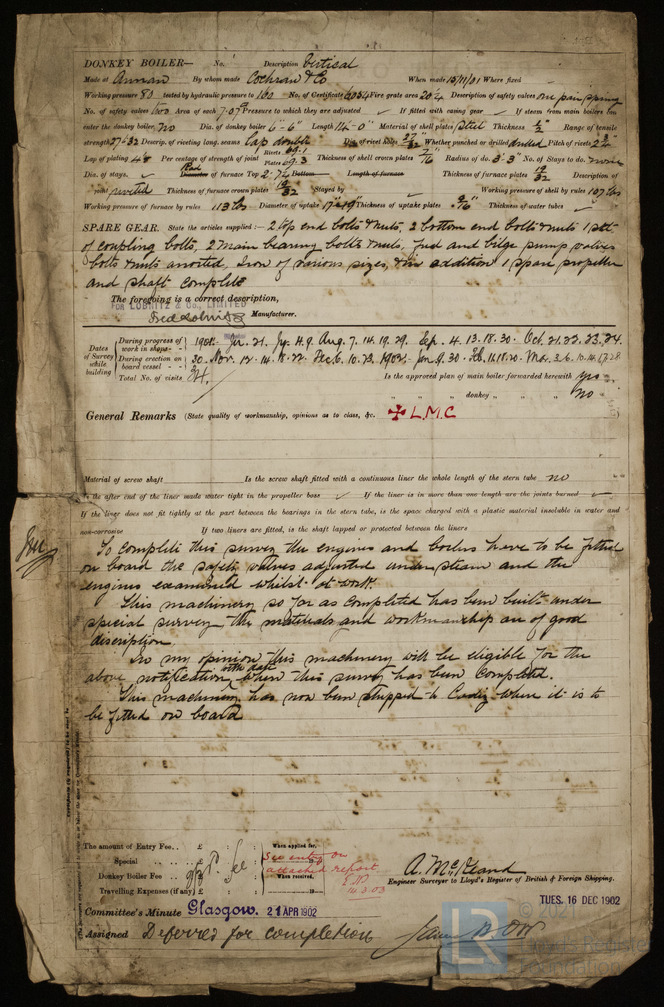 DONKEY BOILER— No. Description Vertical
Made at Annan By whom made Cochran & Co When made 15/11/01 Where fixed
Working pressure 80 tested by hydraulic pressure to 160 No. of Certificate 6054 Fire grate area 20¼ Description of safety valves one pair spring
No. of safety valves two Area of each 7.07" Pressure to which they are adjusted ✓ If fitted with easing gear ✓ If steam from main boilers can
enter the donkey boiler no Dia. of donkey boiler 6'-6" Length 14'-0" Material of shell plates Steel Thickness Range of tensile
strength 27-32 Descrip. of riveting long. seams Lap double Dia. of rivet holes 27/32 Whether punched or drilled drilled Pitch of rivets
Lap of plating Per centage of strength of joint Rivets 69.1 Plates 69.3 Thickness of shell crown plates 7/16 Radius of do. 3'3" No. of Stays to do. none
Dia. of stays. ✓ of furnace Top Bottom Length of furnace Thickness of furnace plates 19/32 Description of
joint riveted Thickness of furnace crown plates 19/32 Stayed by Working pressure of shell by rules 107 lbs
Working pressure of furnace by rules 113 lbs Diameter of uptake Thickness of uptake plates 9/16" Thickness of water tubes ✓
SPARE GEAR. State the articles supplied:— 2 top end bolts & nuts, 2 bottom end bolts & nuts 1 set
of coupling bolts, 2 main bearing bolts & nuts, feed and bilge pump valves
bolts & nuts assorted, Iron of various sizes, & in addition 1 spare propeller
and shaft complete
The foregoing is a correct description,
FOR LOBNITZ & Co., LIMITED
Fred Lobnitz Manufacturer.
Dates of Survey while building
During progress of work in shops - - 1901. 21. Aug. 7. 14. 19. 29. Sep. 4. 13. 18. 30. Oct. 21. 22. 23. 24.
During erection on board vessel - - 30. Nov. 12. 14. 18. 22. Dec. 6. 10. 1902. Jan. 9. 30. Feb. 18. 20. Mar. 3. 6. 10. 14. 17. 28
Total No. of visits
Is the approved plan of main boiler forwarded herewith yes
" " " donkey " " " no
General Remarks (State quality of workmanship, opinions as to class, &c. ✠ L.M.C
Material of screw shaft Is the screw shaft fitted with a continuous liner the whole length of the stern tube no
Is the after end of the liner made water tight in the propeller boss ✓ If the liner is in more than one length are the joints burned ✓
If the liner does not fit tightly at the part between the bearings in the stern tube, is the space charged with a plastic material insoluble in water and
non-corrosive If two liners are fitted, is the shaft lapped or protected between the liners
To complete this survey the engines and boilers have to be fitted
on board the safety valves adjusted under steam and the
engines examined whilst at work.
This machinery so far as completed has been built under
special survey the materials and workmanship are of good
discription.
In my opinion this machinery will be eligible for the
above notification with date when this survey has been completed.
This machinery has now been shipped to Cadiz where it is to
be fitted on board
The amount of Entry Fee.. £ : : When applied for.
Special .. .. £ : :
Donkey Boiler Fee .. £ : : When received,
Travelling Expenses (if any) £ : :
See entry on
attached report
14.3.03
A. McKeand
Engineer Surveyor to Lloyd's Register of British & Foreign Shipping.
Committee's Minute Glasgow. 21 APR 1902
TUES. 16 DEC 1902
Assigned Deferred for completion
LR
© 2021
Lloyd's Register
Foundation